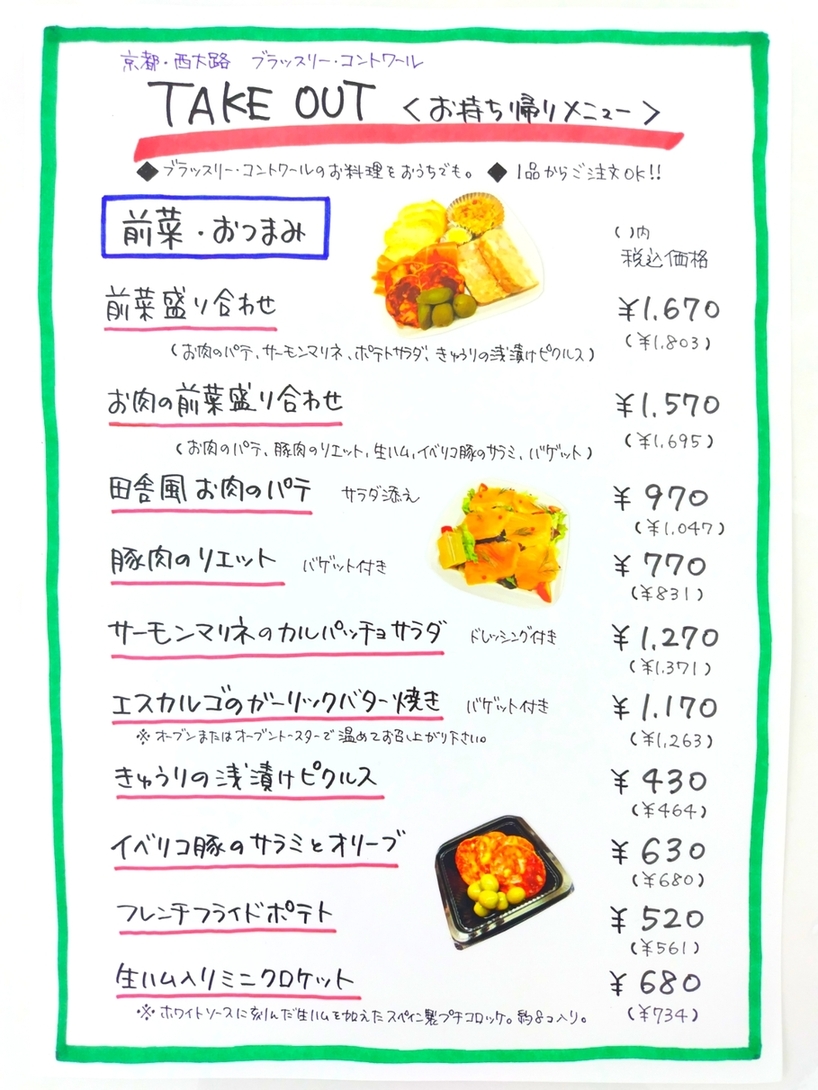 京都・西大路 ブラッスリー・コントワール
TAKE OUT <お持ち帰りメニュー>
◆ブラッスリー・コントワールのお料理をおうちでも。 ◆1品からご注文OK!!
前菜・おつまみ
( )内
税込価格
前菜盛り合わせ ¥1.670
(お肉のパテ、サーモンマリネ、ポテトサラダ、きゅうりの浅漬けピクルス) (¥1.803)
お肉の前菜盛り合わせ ¥1.570
(お肉のパテ、豚肉のリエット、生ハム、イベリコ豚のサラミ、バゲット) (¥1.695)
田舎風お肉のパテ サラダ添え ¥970
(¥1.047)
豚肉のリエット バゲット付き ¥770
(¥831)
サーモンマリネのカルパッチョサラダ ドレッシング付き ¥1.270
(¥1.371)
エスカルゴのガーリックバター焼き バゲット付き ¥1.170
※オーブンまたはオーブントースターで温めてお召し上がり下さい。 (¥1,263)
きゅうりの浅漬けピクルス ¥430
(¥464)
イベリコ豚のサラミとオリーブ ¥630
(¥680)
フレンチフライドポテト ¥520
(¥561)
生ハム入りミニクロケット ¥680
※ホワイトソースに刻んだ生ハムを加えたスペイン製プチコロッケ。約8コ入り。 (¥734)